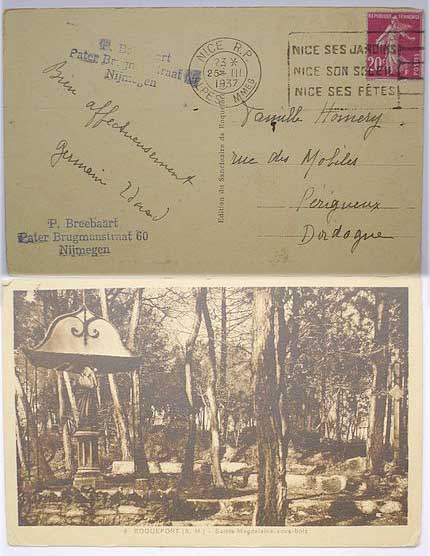 P. Breebaart
Pater Brugmanstraat
Nijmegen
NICE R.P.
23 *
25 III
1937
ALPES MMES
NICE SES JARDINS
NICE SON SOLEIL
NICE SES FÊTES!
RÉPUBLIQUE FRANÇAISE
20c
POSTES
Bien
affectueusement
Germain
Edition du Sanctuaire de Roquefort
Famille
rue des Mobiles
Périgueux
Dordogne
P. Breebaart
Pater Brugmanstraat 60
Nijmegen
ROQUEFORT (A. M.) - Sainte Magdeleine sous-bois